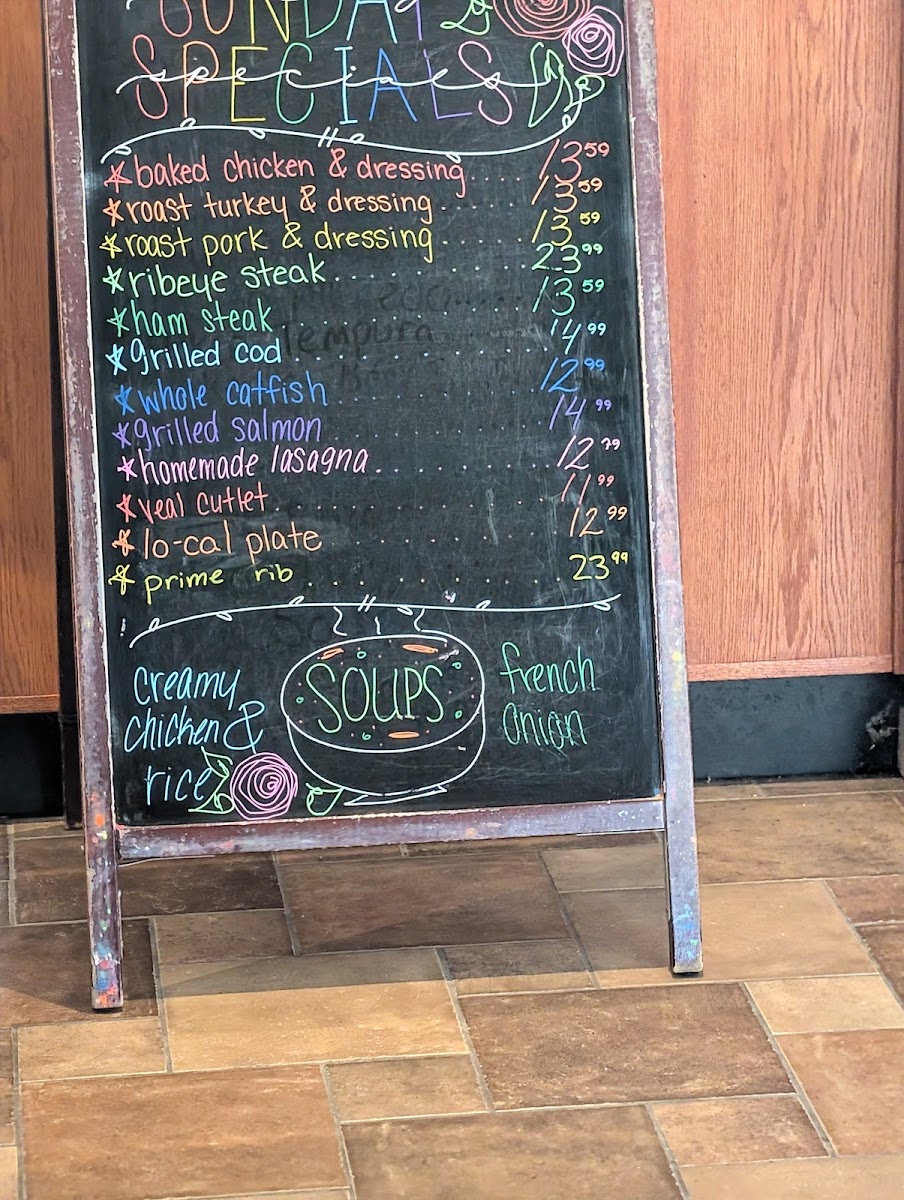 SUNDAY
SPECIALS
specials
*baked chicken & dressing.....13.59
*roast turkey & dressing.....13.59
*roast pork & dressing.....13.59
*ribeye steak.....23.99
*ham steak.....13.59
*grilled cod.....14.99
*whole catfish.....12.99
*grilled salmon.....14.99
*homemade lasagna.....12.79
*veal cutlet.....11.99
*lo-cal plate.....12.99
*prime rib.....23.99
creamy
chicken &
rice
SOUPS
french
onion